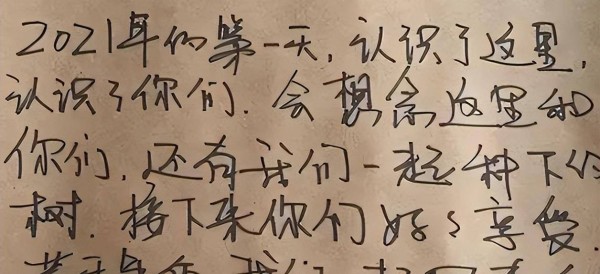 2021年的第一天,认识了这里,
认识了你们.会想念这里和
你们,还有我们一起种下的
树.接下来你们好好享受.